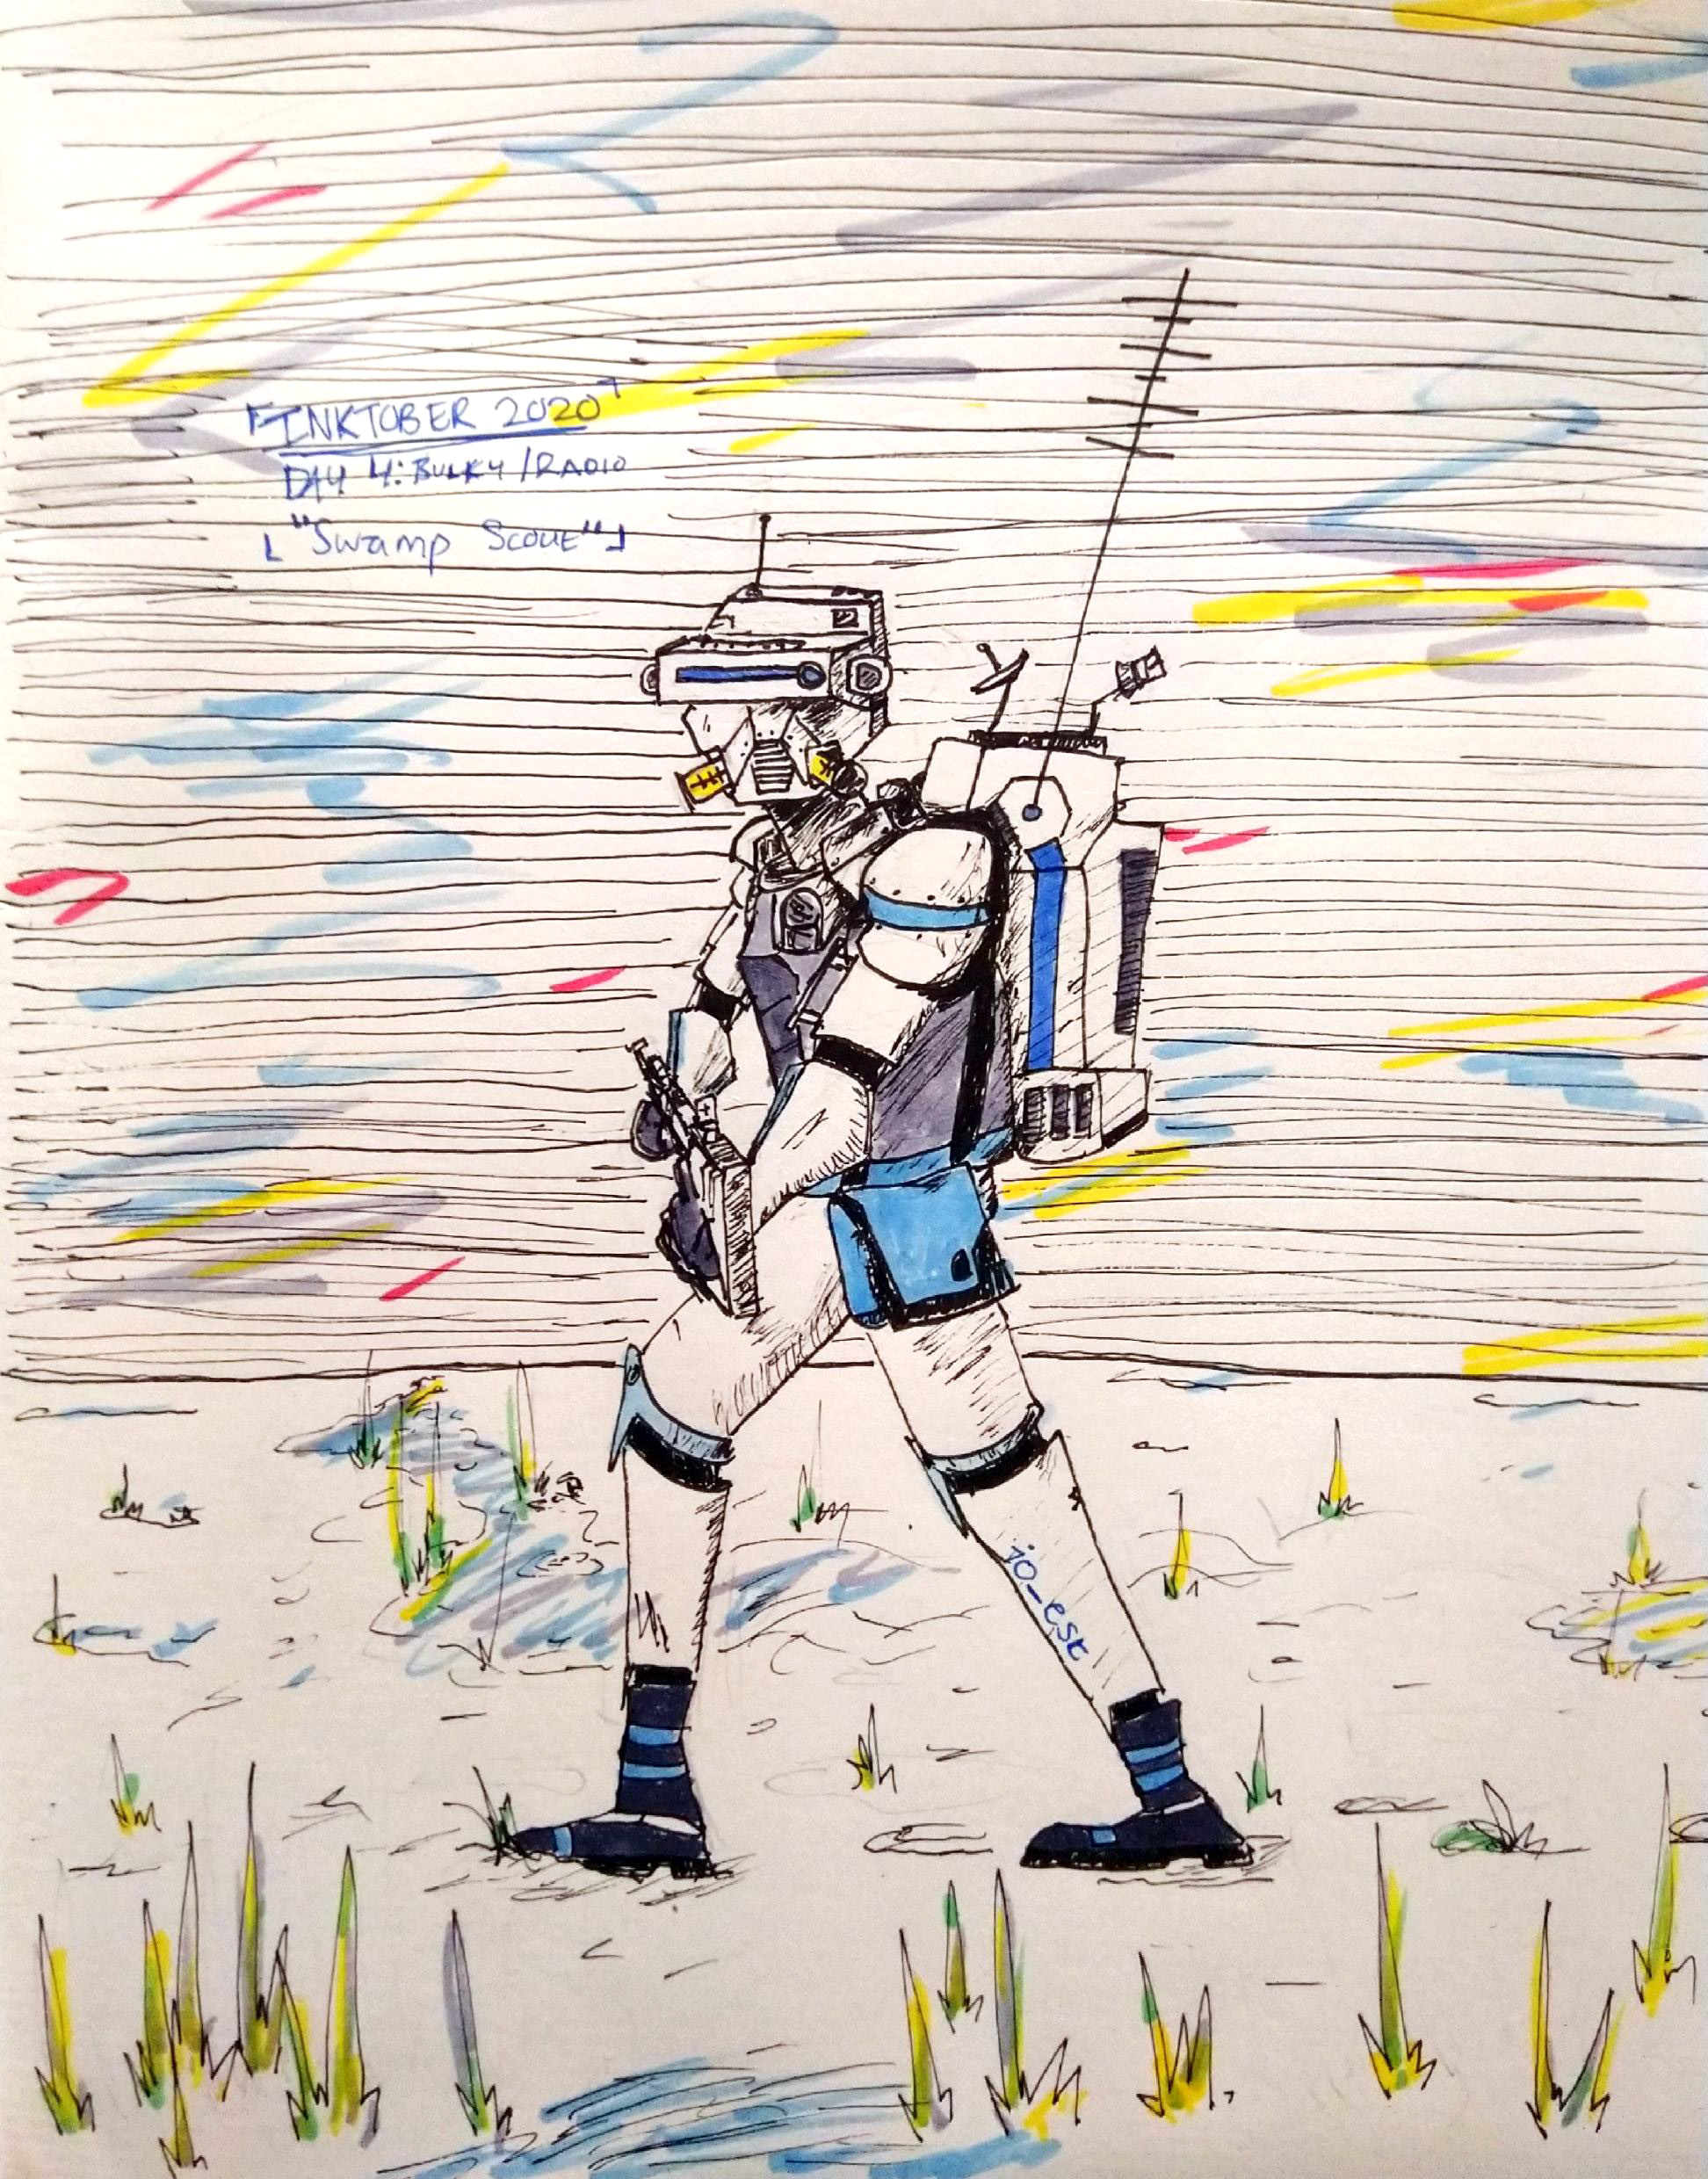 「INKTOBER 2020」
DAY 4: BULKY/RADIO
"Swamp Scout"
jo_est